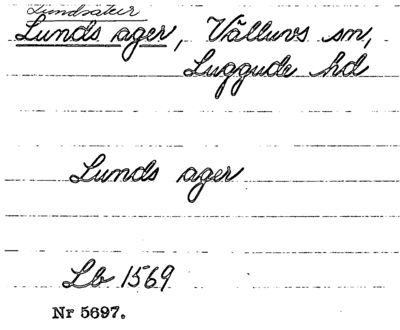 Lundsåker
Lunds ager, Välluvs sn,
Luggude hd
Lunds ager
Lb 1569
Nr 5697.